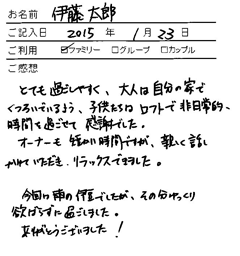 お名前 伊藤 太郎
ご記入日 2015 年 1月 23日
ご利用 ☑ファミリー □グループ □カップル
ご感想
とても過ごしやすく、大人は自分の家で
くつろいでいるよう、子供たちはロフトで非日常的、
時間を過ごせて 感謝でした。
オーナーも 短かい時間ですが、親しく話し
かけていただき、リラックスできました。
今回は雨の伊豆でしたが、その分ゆっくり
欲ばらずに過ごしました。
ありがとうございました！